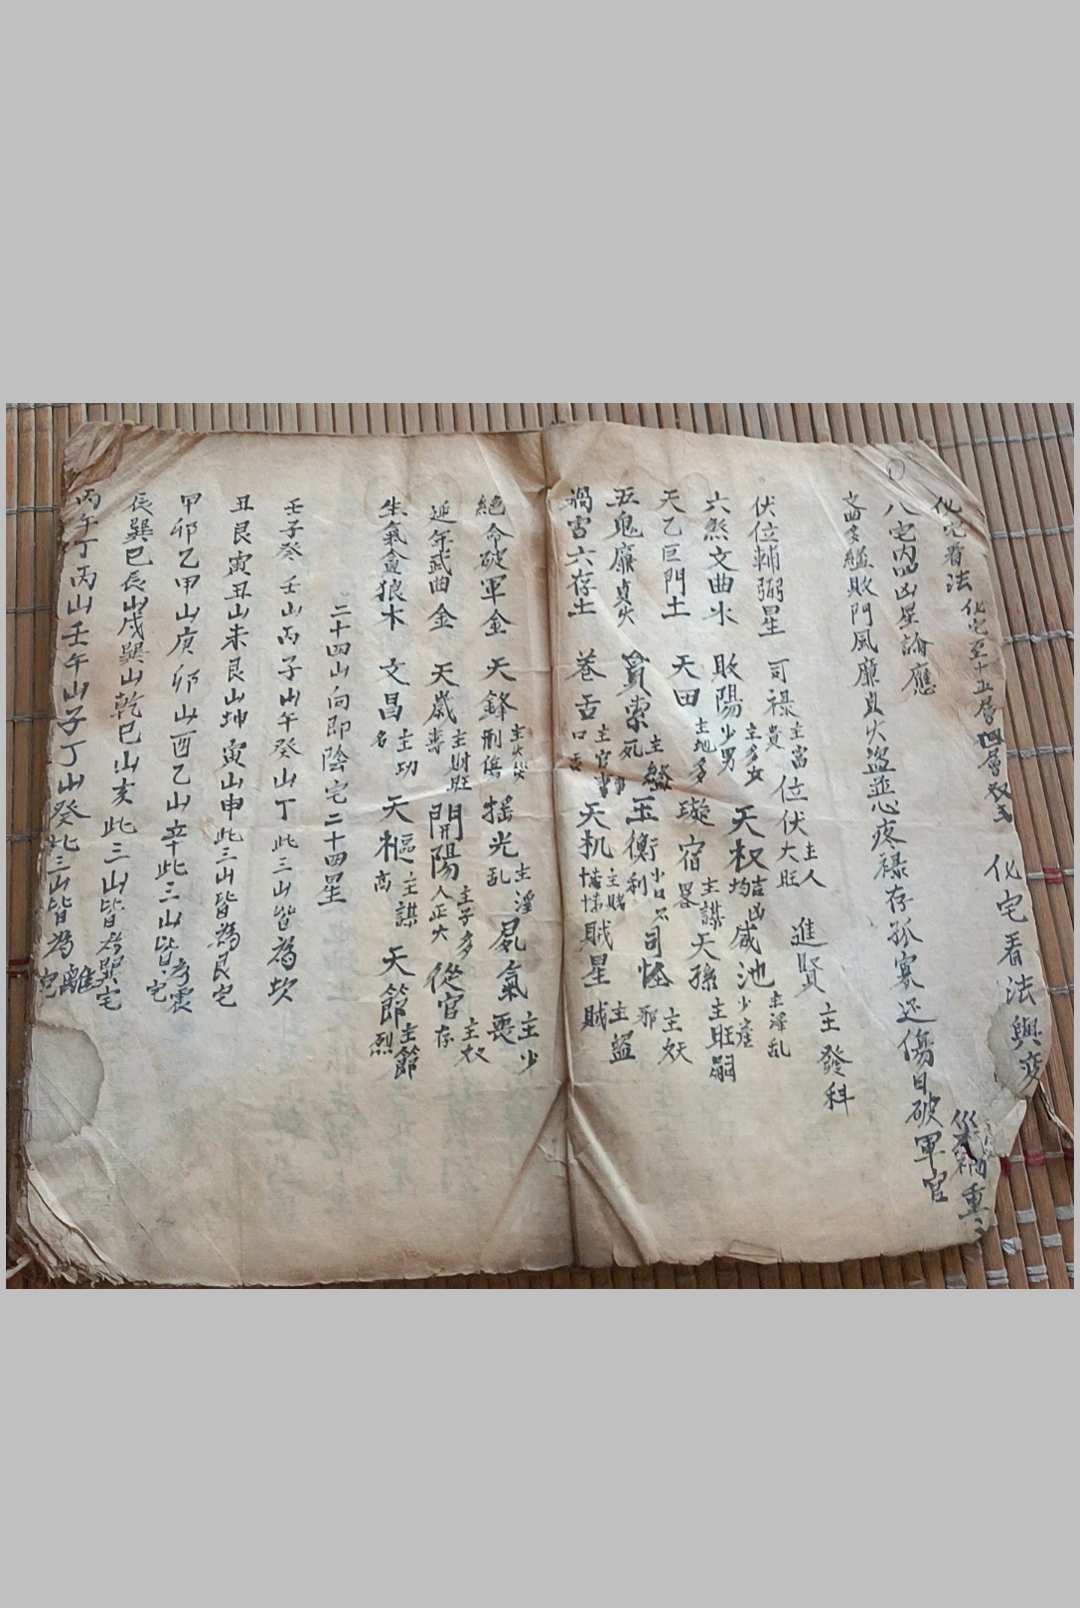 化宅看法 化宅至十五層四層双 化宅看法與变
八宅內凶星論應 災禍重
文曲多縊敗門風廉貞火盜並心疼祿存孤寡还傷目破軍官
伏位輔弼星 司祿主富貴 位伏主人大旺 進賢主發科
六煞文曲水 敗陽主多女少男 天权吉凶均 咸池主淫乱少産
天乙巨門土 天田主地多 璇宿主謀畧 天孫主旺嗣
五鬼廉貞火 貫索主縊死 玉衡小口不利 司怪主妖邪
禍害六存土 巻舌主官事口舌 天机主賭 賊星主盜賊
絕命破軍金 天鋒主火災刑傷 搖光主淫乱 死氣主少喪
延年武曲金 天歲主財旺壽 開陽主子多人正大 從官主奴存
生氣貪狼木 文昌主功名 天樞主謀高 天節主節烈
二十四山向即陰宅二十四星
壬子癸 壬山丙子山午癸山丁此三山皆為坎
丑艮寅丑山未艮山坤寅山申此三山皆為艮宅
甲卯乙甲山庚卯山酉乙山辛此三山皆為震宅
辰巽巳辰山戌巽山乾巳山亥此三山皆為巽宅
丙午丁丙山壬午山子丁山癸此三山皆為離宅